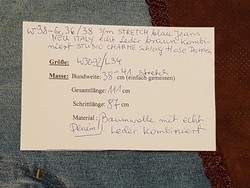 W-38-G, 36/38 s/m STRETCH blau Jeans
NEU ITALY Echt Leder braun Kombi-
niert STUDIO CHARME Schlag Hose Damen
Größe: W30-32/L34
Masse: Bundweite: 38-41 stretch cm (einfach gemessen)
Gesamtlänge: 111 cm
Schrittlänge: 87 cm
Material: Baumwolle mit echt
Denim! Leder Kombiniert